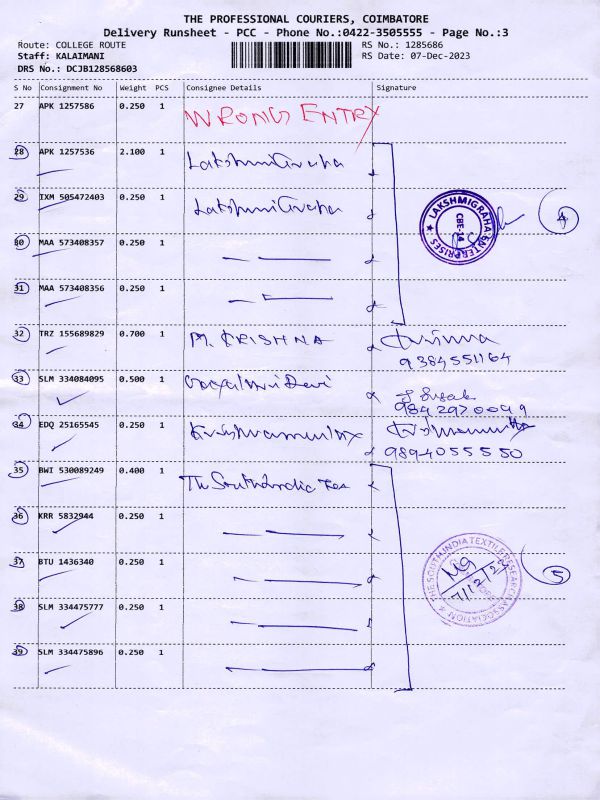 THE PROFESSIONAL COURIERS, COIMBATORE
Delivery Runsheet - PCC - Phone No.:0422-3505555 - Page No.:3
Route: COLLEGE ROUTE RS No.: 1285686
Staff: KALAIMANI RS Date: 07-Dec-2023
DRS No.: DCJB128568603
S No Consignment No Weight PCS Consignee Details Signature
27 APK 1257586 0.250 1 WRONG ENTRY
28 APK 1257536 2.100 1 LakshmiGraha
29 IXM 505472403 0.250 1 LakshmiGraha
LAKSHMIGRAHA ENTERPRISES ★ CBE-14
4
30 MAA 573408357 0.250 1
31 MAA 573408356 0.250 1
32 TRZ 155689829 0.700 1 M. KRISHNA
9384551164
33 SLM 334084095 0.500 1
9842970099
34 EDQ 25165545 0.250 1
9894055550
35 BWI 530089249 0.400 1 The SouthIndia Tex
36 KRR 5832944 0.250 1
37 BTU 1436340 0.250 1
THE SOUTH INDIA TEXTILE RESEARCH ASSOCIATION ★
7/12/23
5
38 SLM 334475777 0.250 1
39 SLM 334475896 0.250 1